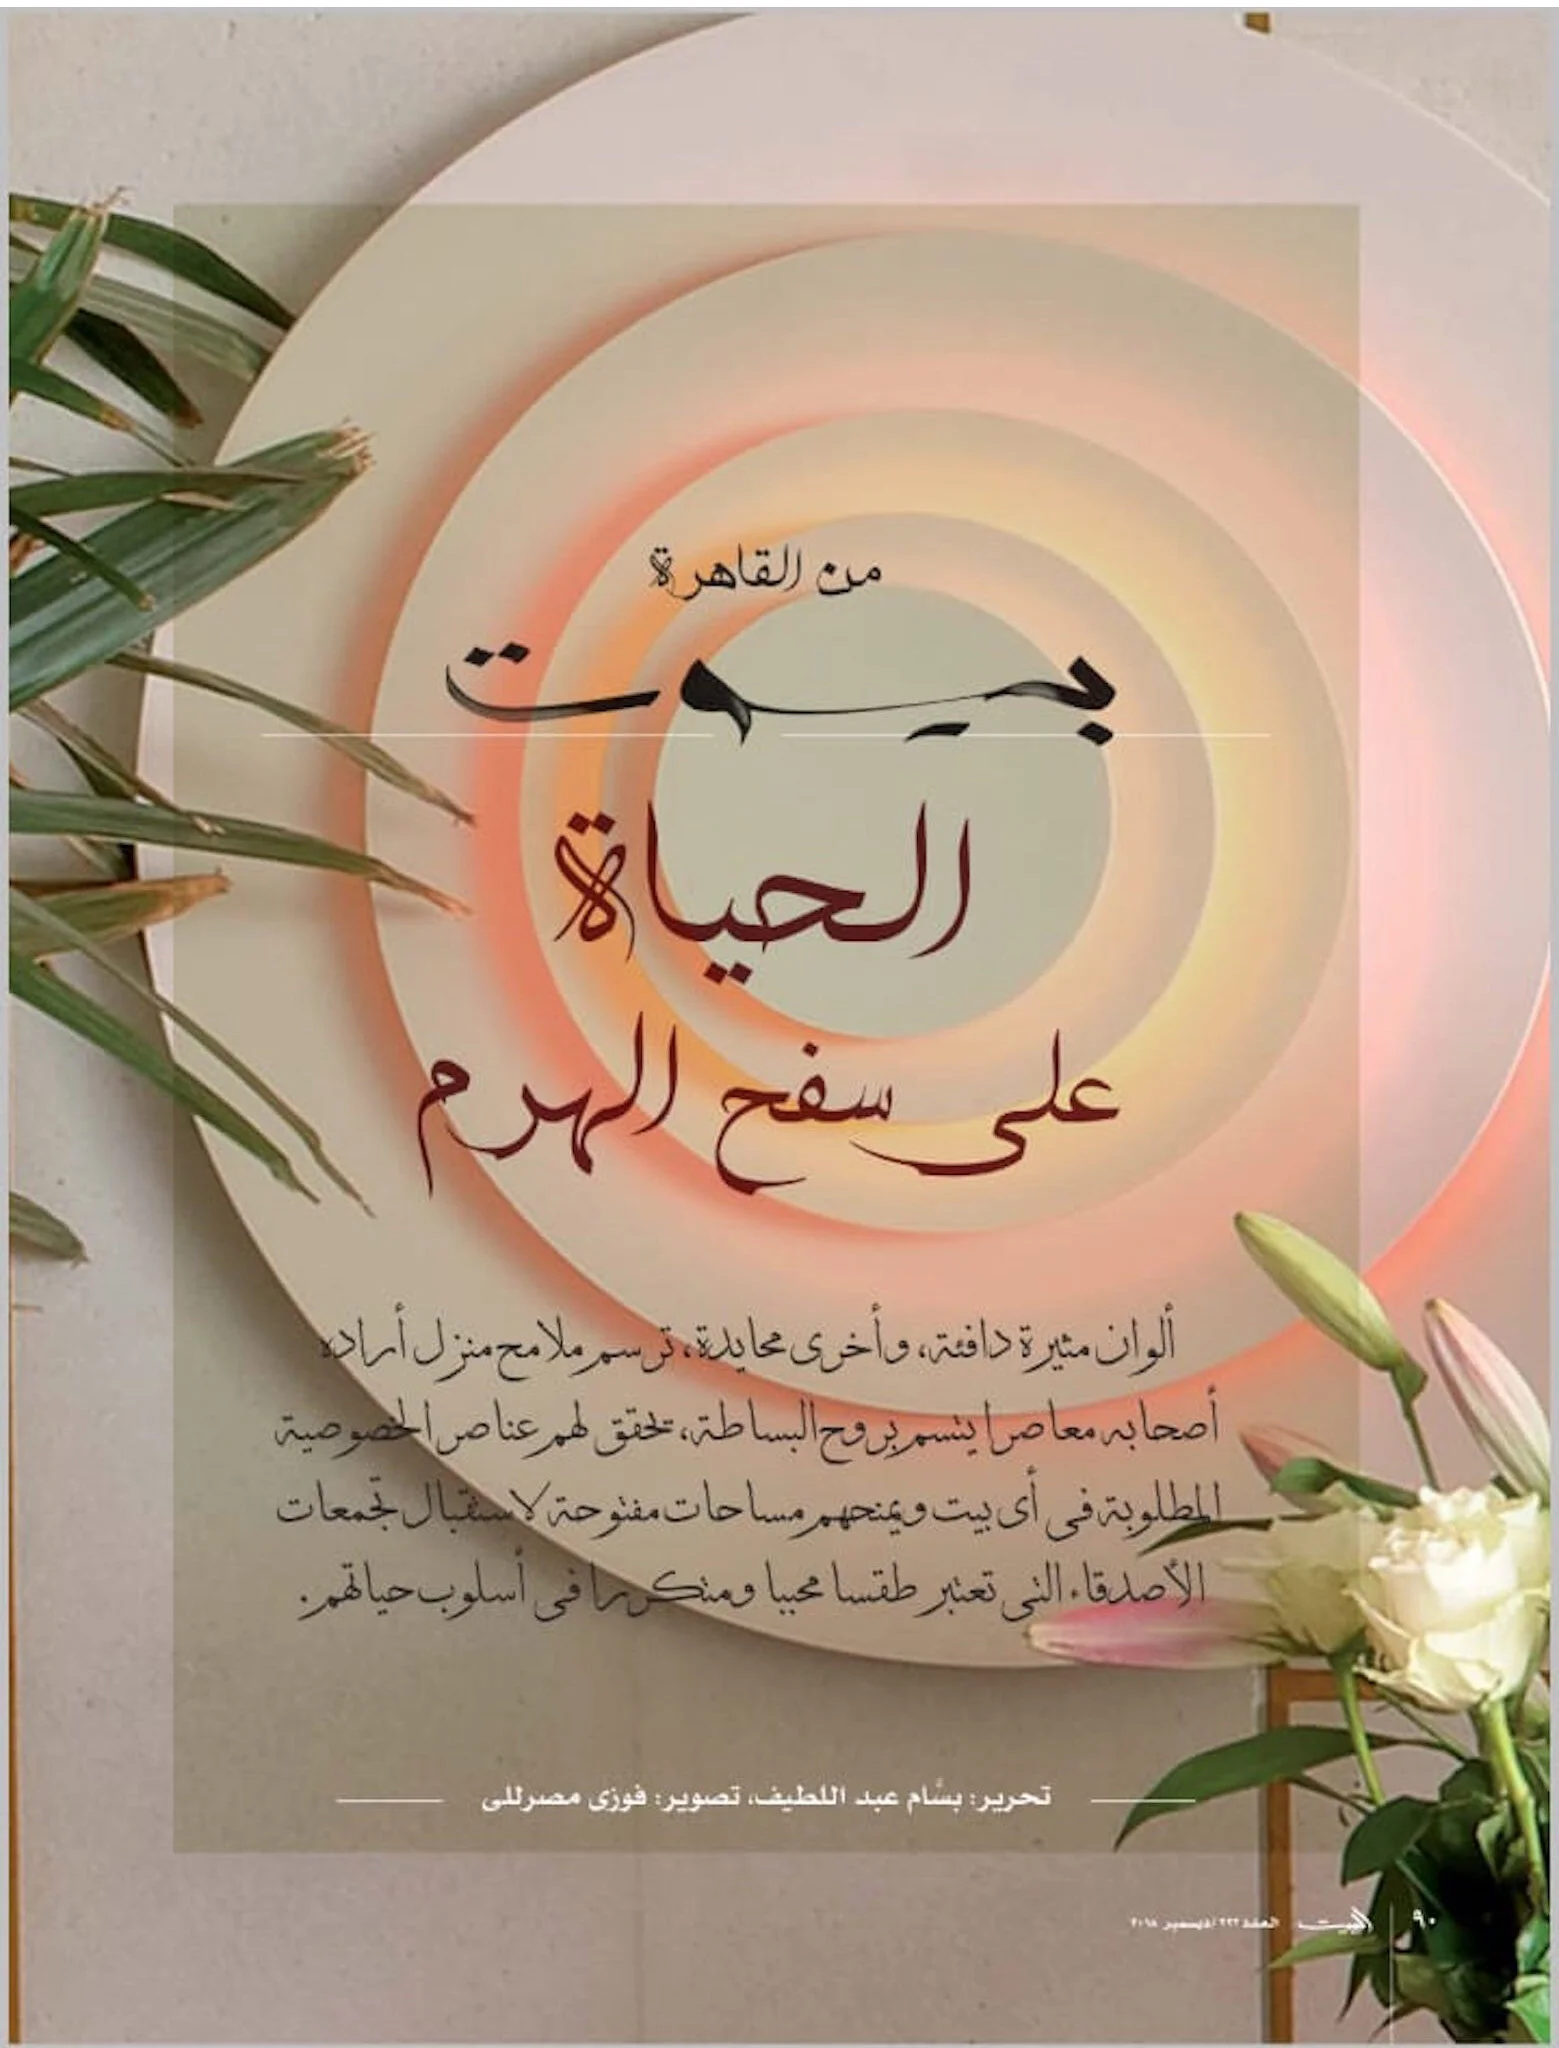 من القاهرة
بيوت
الحياة
على سفح الهرم
ألوان مثيرة دافئة، وأخرى محايدة، ترسم ملامح منزل أراده
أصحابه معاصرا يتسم بروح البساطة، تحقق لهم عناصر الخصوصية
المطلوبة فى أى بيت ويمنحهم مساحات مفتوحة لاستقبال تجمعات
الأصدقاء التى تعتبر طقسا محببا ومتكررا فى أسلوب حياتهم.
تحرير: بسَّام عبد اللطيف، تصوير: فوزى مصرللى
٩٠ البيت العدد ٢٢٢ /ديسمبر ٢٠١٨